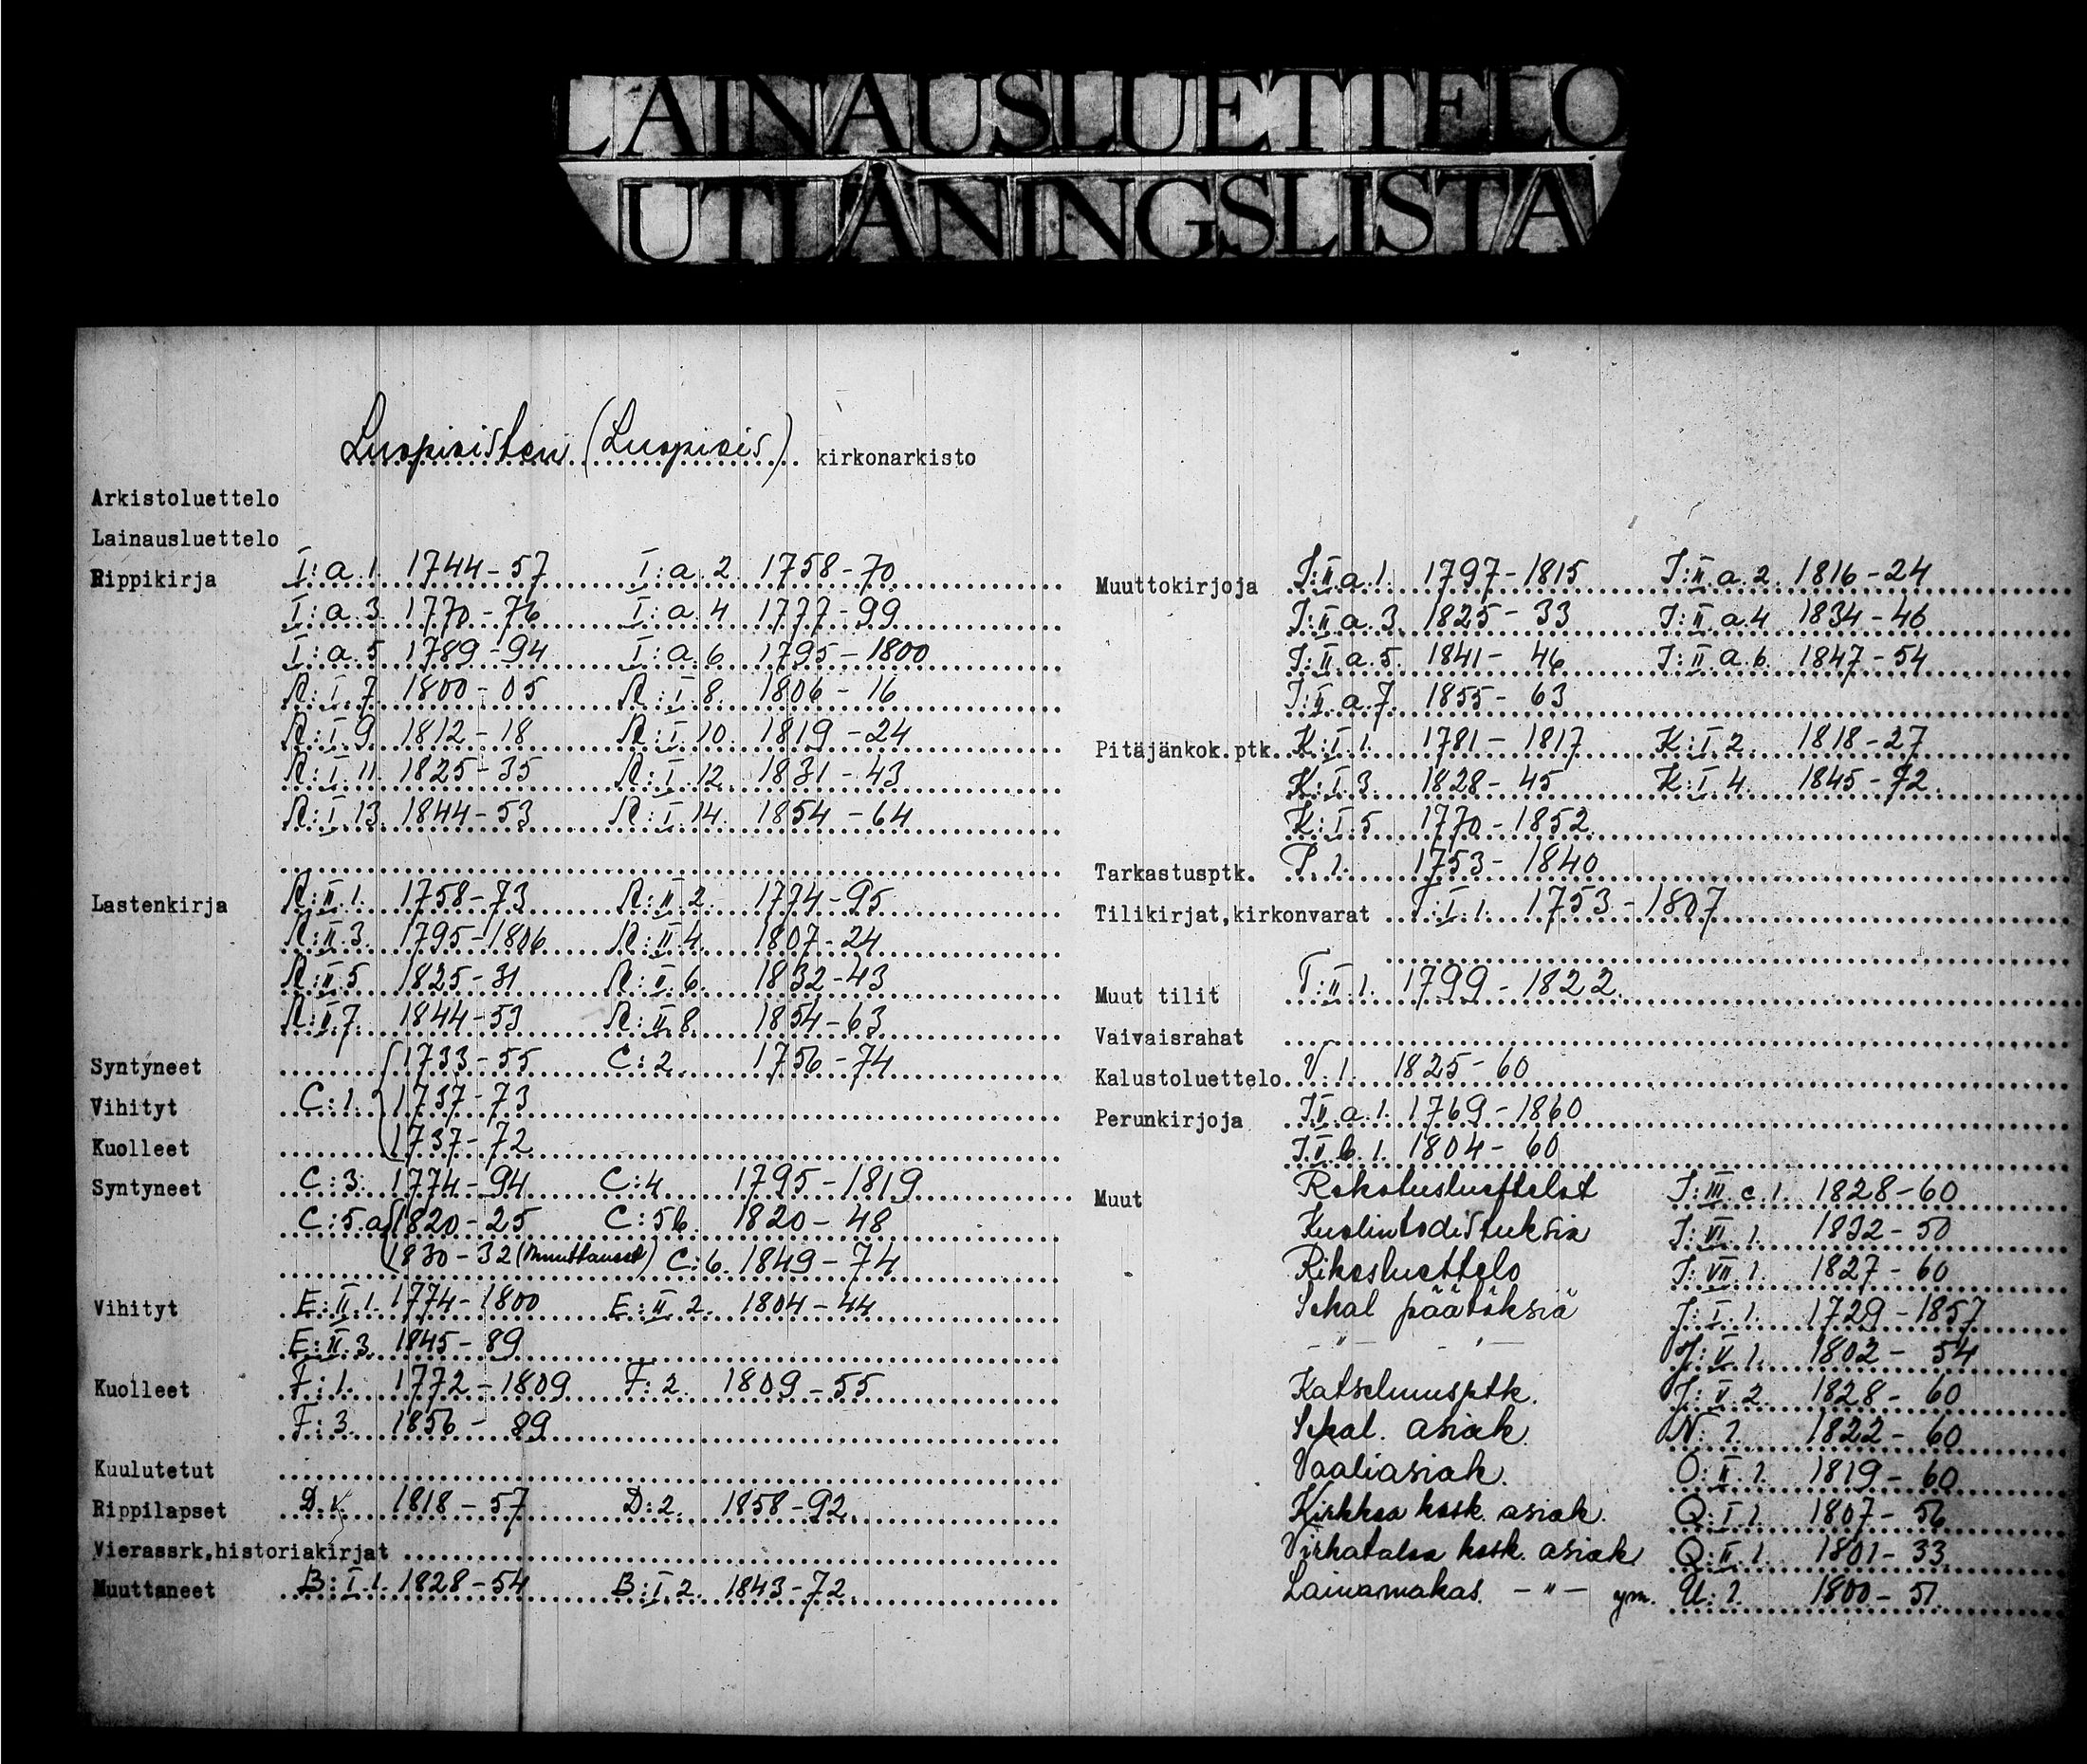 LAINAUSLUETTELO
UTLÅNINGSLISTA
Luopioisten (Luopiois) kirkonarkisto
Arkistoluettelo
Lainausluettelo
Rippikirja I:a.1. 1744-57 I:a.2. 1758-70
I:a.3. 1770-76 I:a.4. 1777-99
I:a.5. 1789-94 I:a.6. 1795-1800
R:I.7. 1800-05 R:I.8. 1806-16
R:I.9. 1812-18 R:I.10. 1819-24
R:I.11. 1825-35 R:I.12. 1831-43
R:I.13. 1844-53 R:I.14. 1854-64
Lastenkirja R:II.1. 1758-73 R:II.2. 1774-95
R:II.3. 1795-1806 R:II.4. 1807-24
R:II.5 1825-31 R:II.6. 1832-43
R:II.7. 1844-53 R:II.8. 1854-63
Syntyneet 1733-55 C:2. 1756-74
Vihityt C:1. 1737-73
Kuolleet 1737-72
Syntyneet C:3. 1774-94 C:4 1795-1819
C:5.a 1820-25 C:5b. 1820-48
1830-32 (Muuttaneet) C:6. 1849-74
Vihityt E:II.1. 1774-1800 E:II.2. 1804-44
E:II.3. 1845-89
Kuolleet F:1. 1772-1809 F:2. 1809-55
F:3. 1856-89
Kuulutetut
Rippilapset D.1. 1818-57 D:2. 1858-92.
Vierassrk,historiakirjat
Muuttaneet B:I.1. 1828-54 B:I.2. 1843-72.
Muuttokirjoja J:II.a.1. 1797-1815 J:II.a.2. 1816-24
J:II.a.3. 1825-33 J:II.a.4 1834-46
J:II.a.5. 1841-46 J:II.a.6. 1847-54
J:II.a.7. 1855-63
Pitäjänkok.ptk. K:I.1. 1781-1817 K:I.2. 1818-27
K:I.3. 1828-45 K:I.4. 1845-72.
K:I.5 1770-1852.
Tarkastusptk. P.1. 1753-1840
Tilikirjat,kirkonvarat T:I.1. 1753-1807
Muut tilit T:II.1. 1799-1822.
Vaivaisrahat
Kalustoluettelo V:1. 1825-60
Perunkirjoja J.V.a.1. 1769-1860
J.V.b.1. 1804-60
Muut Rokotusluettelot J:III.c.1. 1828-60
Kuolintodistuksia J:VI.1. 1832-50
Rikosluettelo J:VII.1. 1827-60
Sekal päätöksiä J:I.1. 1729-1857
-"- -"- J:V.1. 1802-54
Katselmusptk. J:V.2. 1828-60
Sekal. asiak. N:1. 1822-60
Vaaliasiak. O:II.1. 1819-60
Kirkkoa kosk. asiak. Q:I.1. 1807-56
Virkataloa kosk. asiak. Q:II.1. 1801-33.
Lainamakas. -"- ym. U:1. 1800-51.